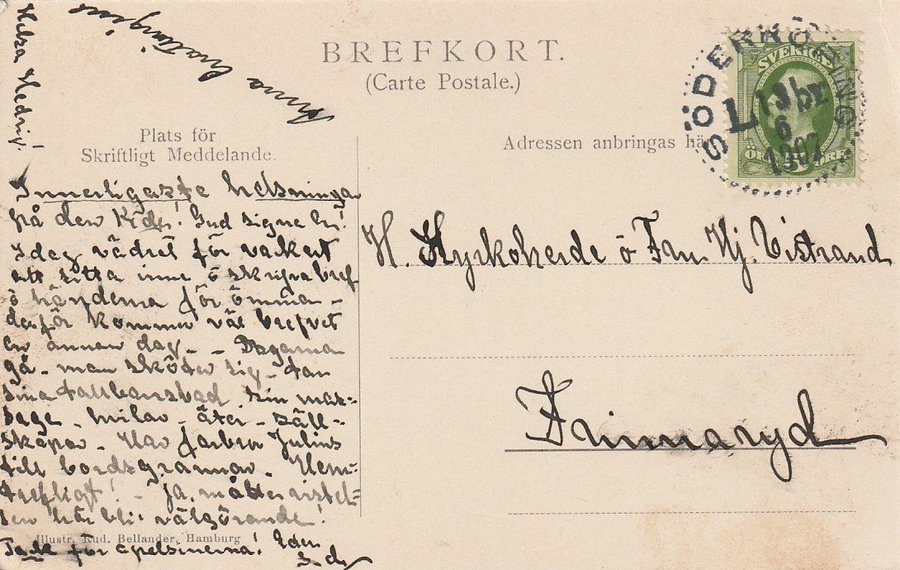 BREFKORT.
(Carte Postale.)
Plats för
Skriftligt Meddelande.
Adressen anbringas hä
SÖDERKÖPING
SVERIGE
L
6
1907
FEM ÖRE
Anna
Helsa Hedvig!
Innerligaste helsningar
på den
Gud signe Er!
Idag vädret för vackert
att sitta inne ö skrifva bref
ö händerna för ömma -
derför kommer väl brefvet
en annan dag. - Dagarna
gå - man sköter sig - tar
sina tallbarrsbad sin mas-
sage - hvilar - äter - säll-
skapar. Har farbror Julius
till bordsgrannar. Hem-
trefligt! - Ja, måtte vistel-
sen här bli välgörande!
Tack för apelsinerna! Eder
H. Kyrkoherde ö Fru Hj. Cistrand
Frinnaryd
Illustr. Rud. Bellander, Hamburg